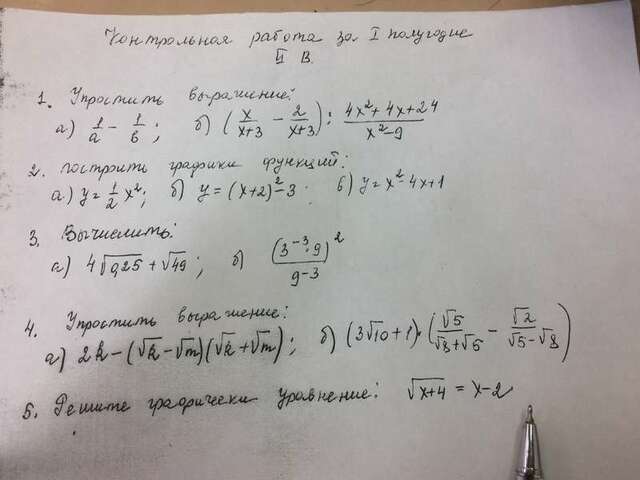 Контрольная работа за I полугодие
II В.
1. Упростить выражение:
а) 1/a - 1/b; б) (x/(x+3) - 2/(x+3)) : (4x²+4x+24)/(x²-9)
2. построить графики функций:
а) y = 1/2 x²; б) y = (x+2)²-3; в) y = x²-4x+1
3. Вычислить:
а) 4√0,25 + √49; б) (3⁻³ 9)²/9⁻³
4. Упростить выражение:
а) 2k-(√k-√m)(√k+√m); б) (3√10+1)(√5/(√8+√5) - √2/(√5-√8))
5. Решите графически уравнение: √(x+4) = x-2